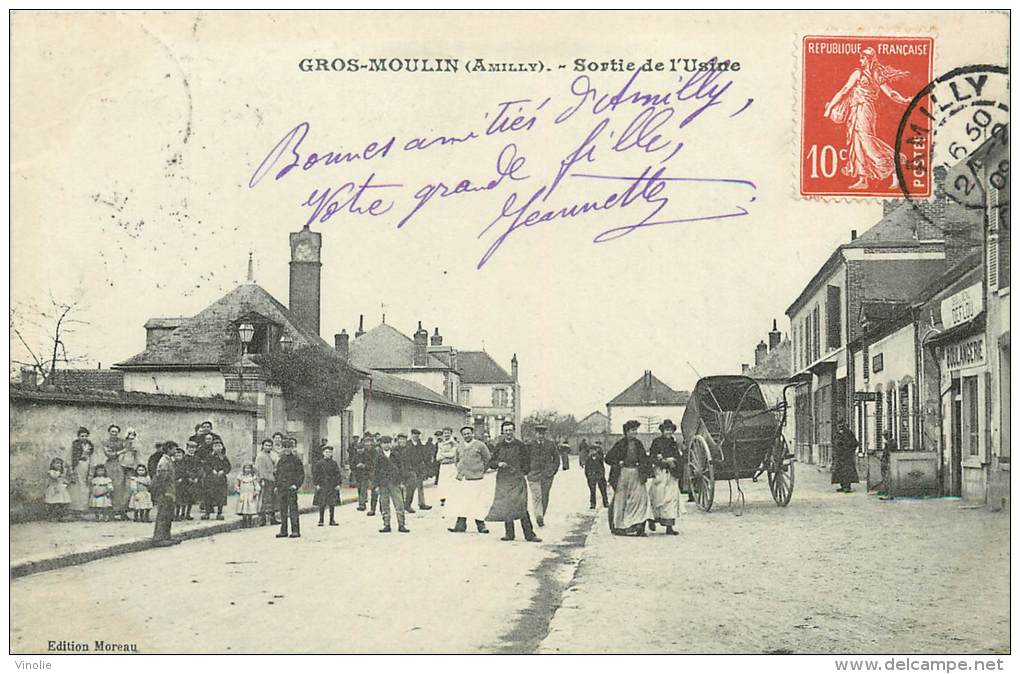 GROS-MOULIN (AMILLY). - Sortie de l'Usine
Bonnes amitiés d'Amilly,
Votre grande fille,
Jeannette
REPUBLIQUE FRANÇAISE
10c
POSTES
AMILLY
DEFLOU
BOULANGERIE
Edition Moreau
Vinolie
http://www.delcampe.net